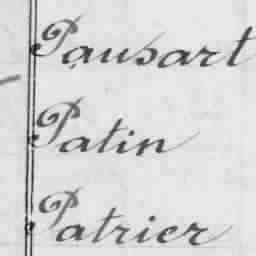 Pausart
Patin
Patrier